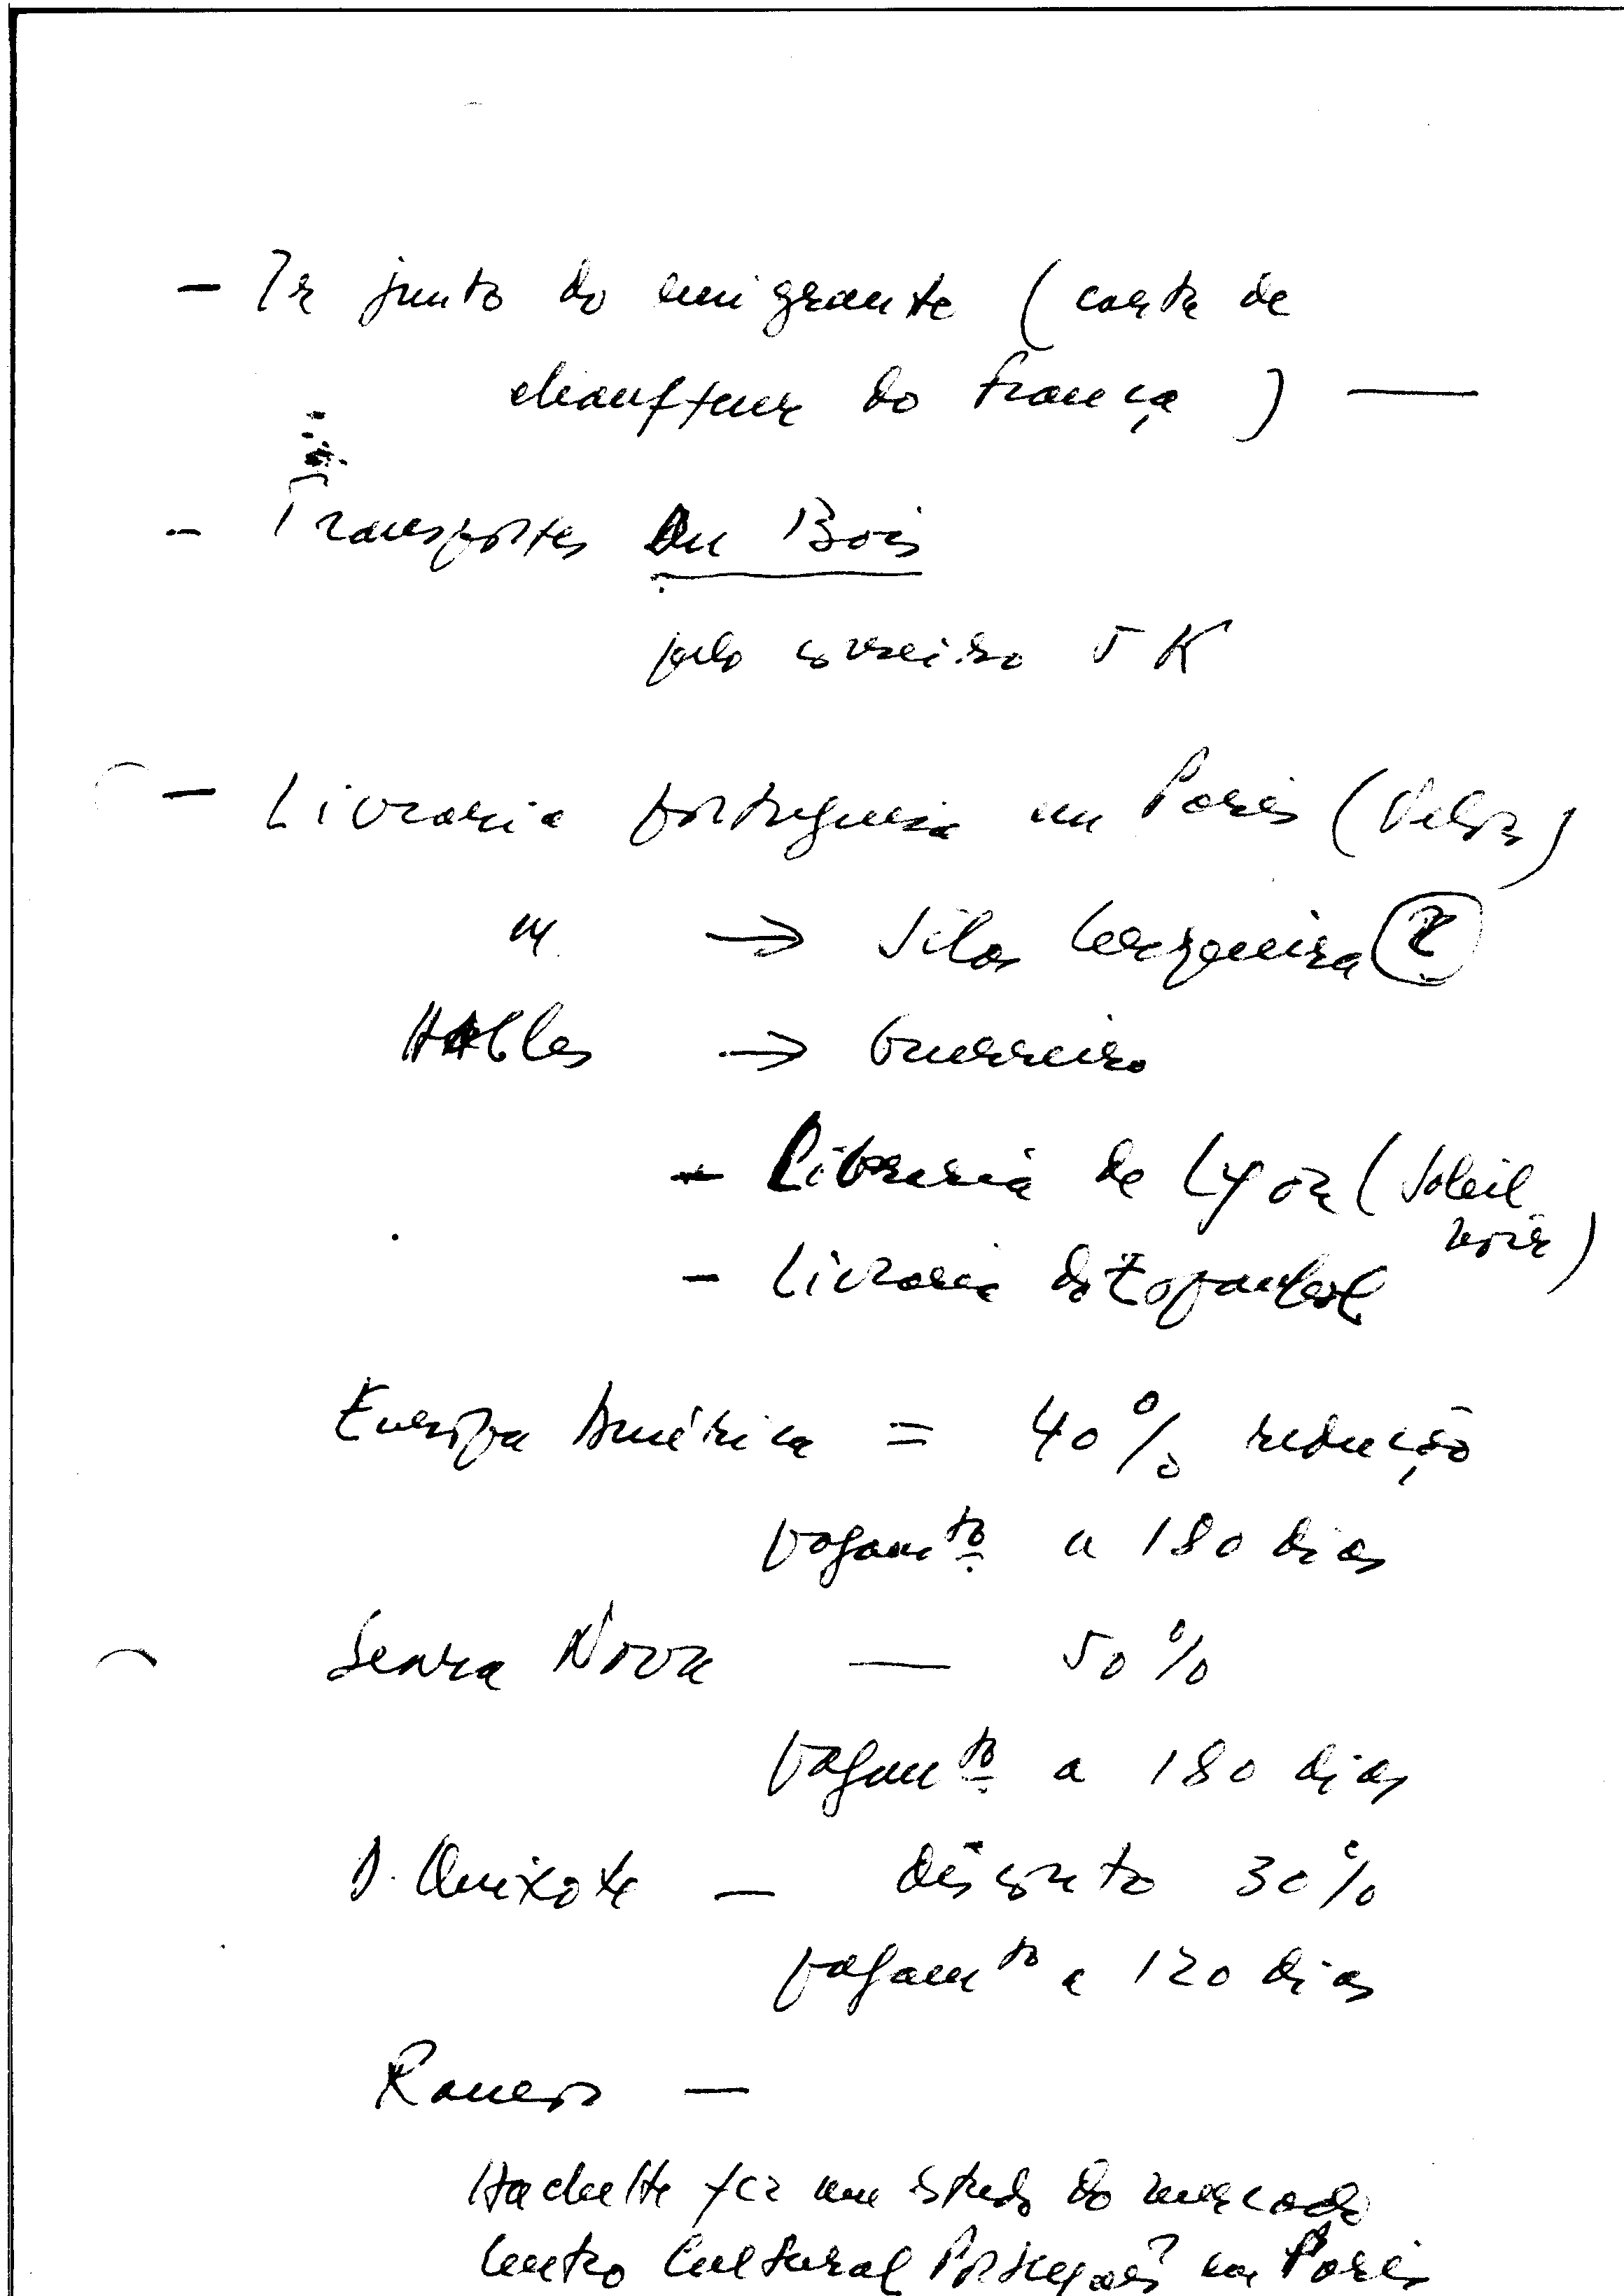 — Ir junto do emigrante (carta de
chauffeur do França) —
- Transportes Du Bois
pelo correio 5 K
— Livraria portuguesa em Paris
" → Silas Cerqueira
Halles → Guerreiro
- Libraria de Lyon (Soleil
noir)
- Livraria do
Europa América = 40% redução
pagamto a 180 dias
Seara Nova — 50%
pagamto a 180 dias
D. Quixote — disconto 30%
pagamto a 120 dias
Ramos —
Hachette fez um estudo do mercado
Centro Cultural Português em Paris